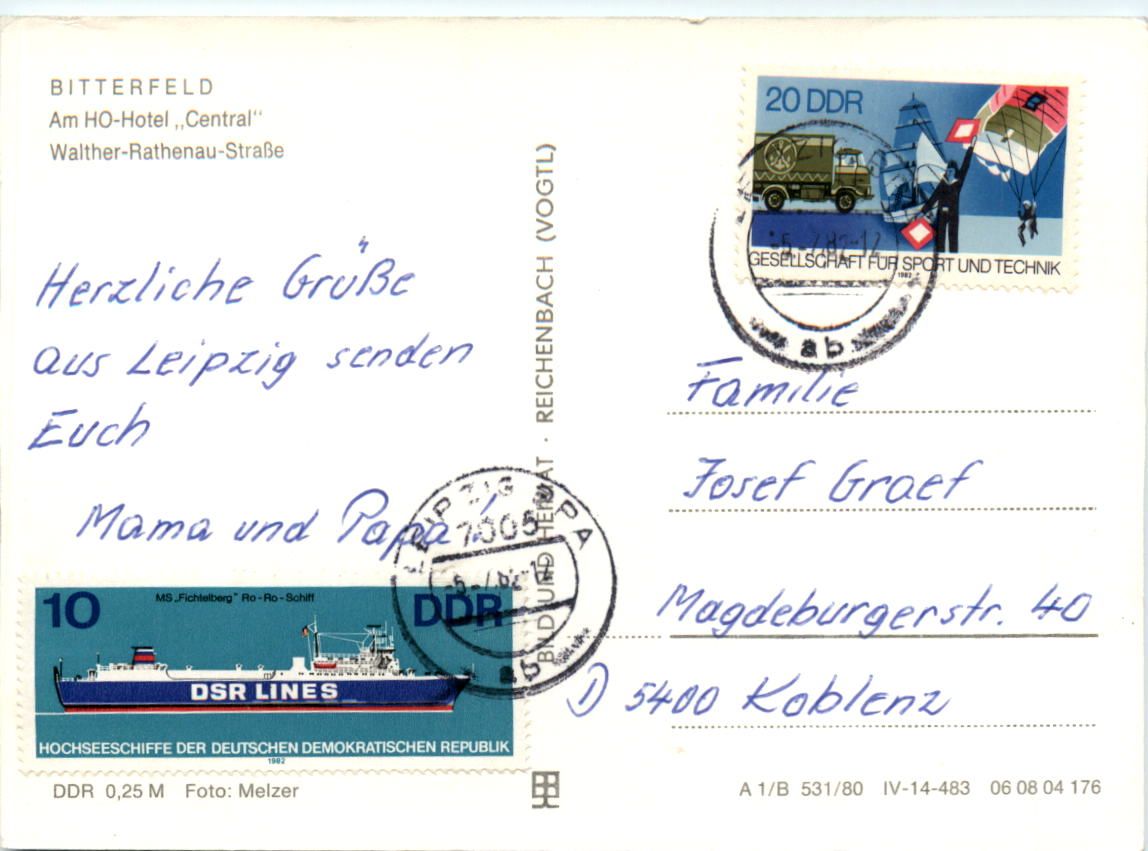 BITTERFELD
Am HO-Hotel „Central"
Walther-Rathenau-Straße
Herzliche Grüße
aus Leipzig senden
Euch
Mama und Papa
10 DDR
MS „Fichtelberg" Ro-Ro-Schiff
DSR LINES
HOCHSEESCHIFFE DER DEUTSCHEN DEMOKRATISCHEN REPUBLIK
1982
DDR 0,25 M Foto: Melzer
BILD UND HEIMAT · REICHENBACH (VOGTL)
LEIPZIG BPA
7005
-5.-7.82-12
ab
20 DDR
GESELLSCHAFT FÜR SPORT UND TECHNIK
1982
-5.-7.82-12
ab
Familie
Josef Graef
Magdeburgerstr. 40
D 5400 Koblenz
A 1/B 531/80 IV-14-483 06 08 04 176